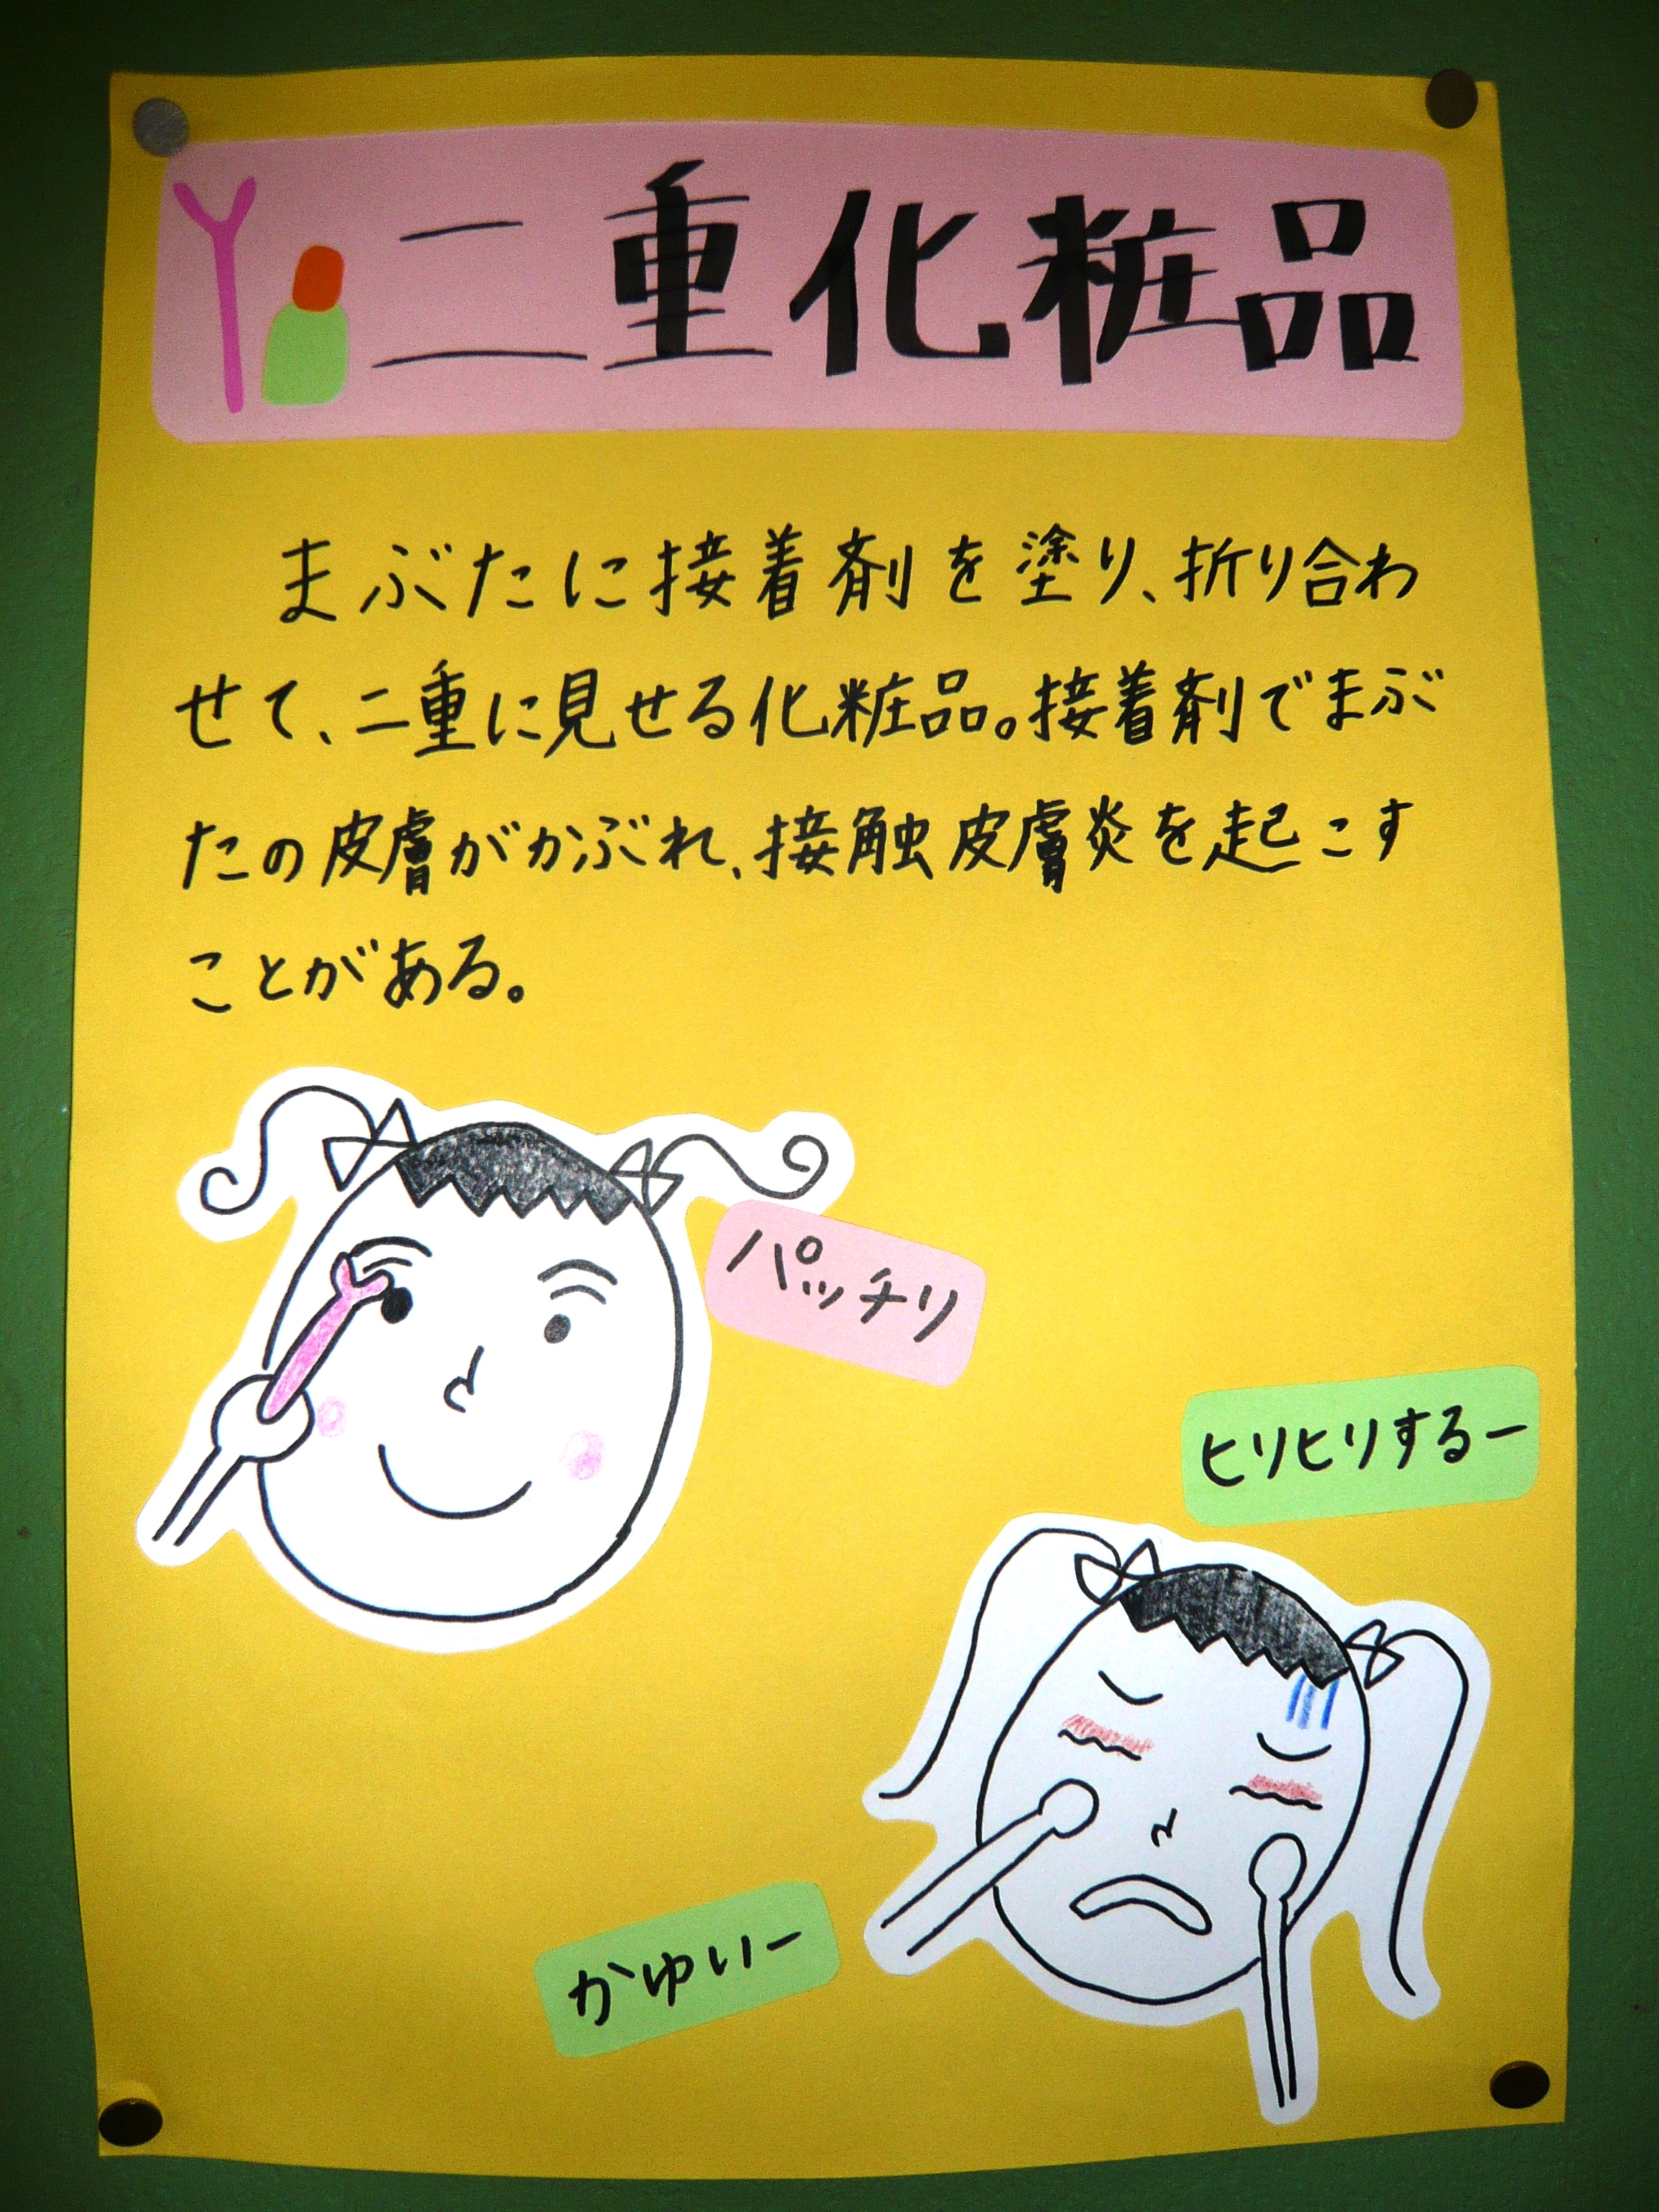 二重化粧品
まぶたに接着剤を塗り、折り合わ
せて、二重に見せる化粧品。接着剤でまぶ
たの皮膚がかぶれ、接触皮膚炎を起こす
ことがある。
パッチリ
ヒリヒリするー
かゆいー